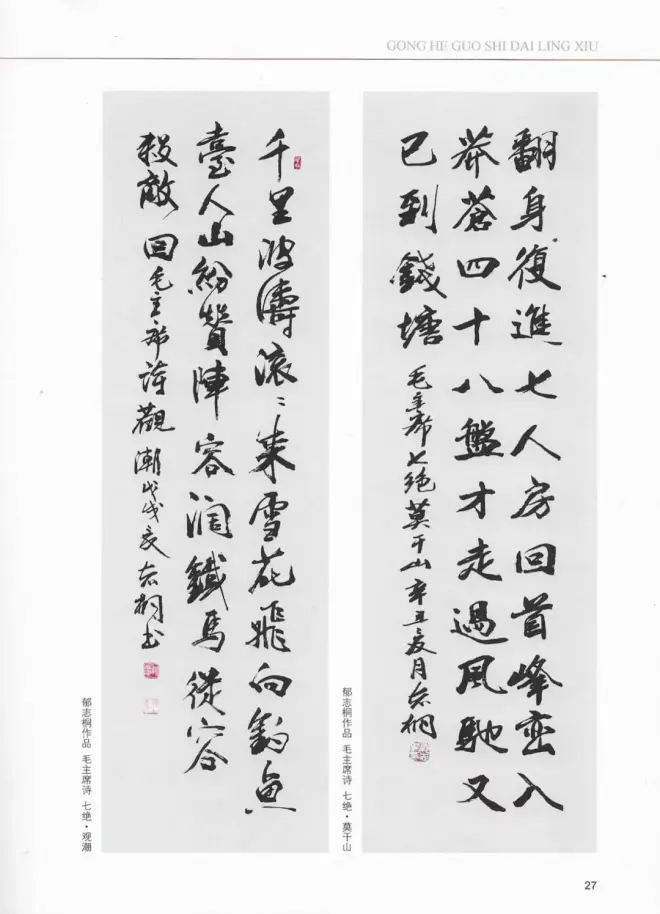 GONG HE GUO SHI DAI LING XIU
翻身復進七人房回首峰峦入
莽蒼四十八盤才走過風馳又
已到錢塘
毛主席七绝莫干山辛丑夏月志桐
郁志桐作品 毛主席诗 七绝·莫干山
千里波濤滚〻来雪花飛向釣魚
臺人山紛贊陣容阔鐵馬從容
殺敵回毛主席詩觀潮戊戌夏志桐书
郁志桐作品 毛主席诗 七绝·观潮
27